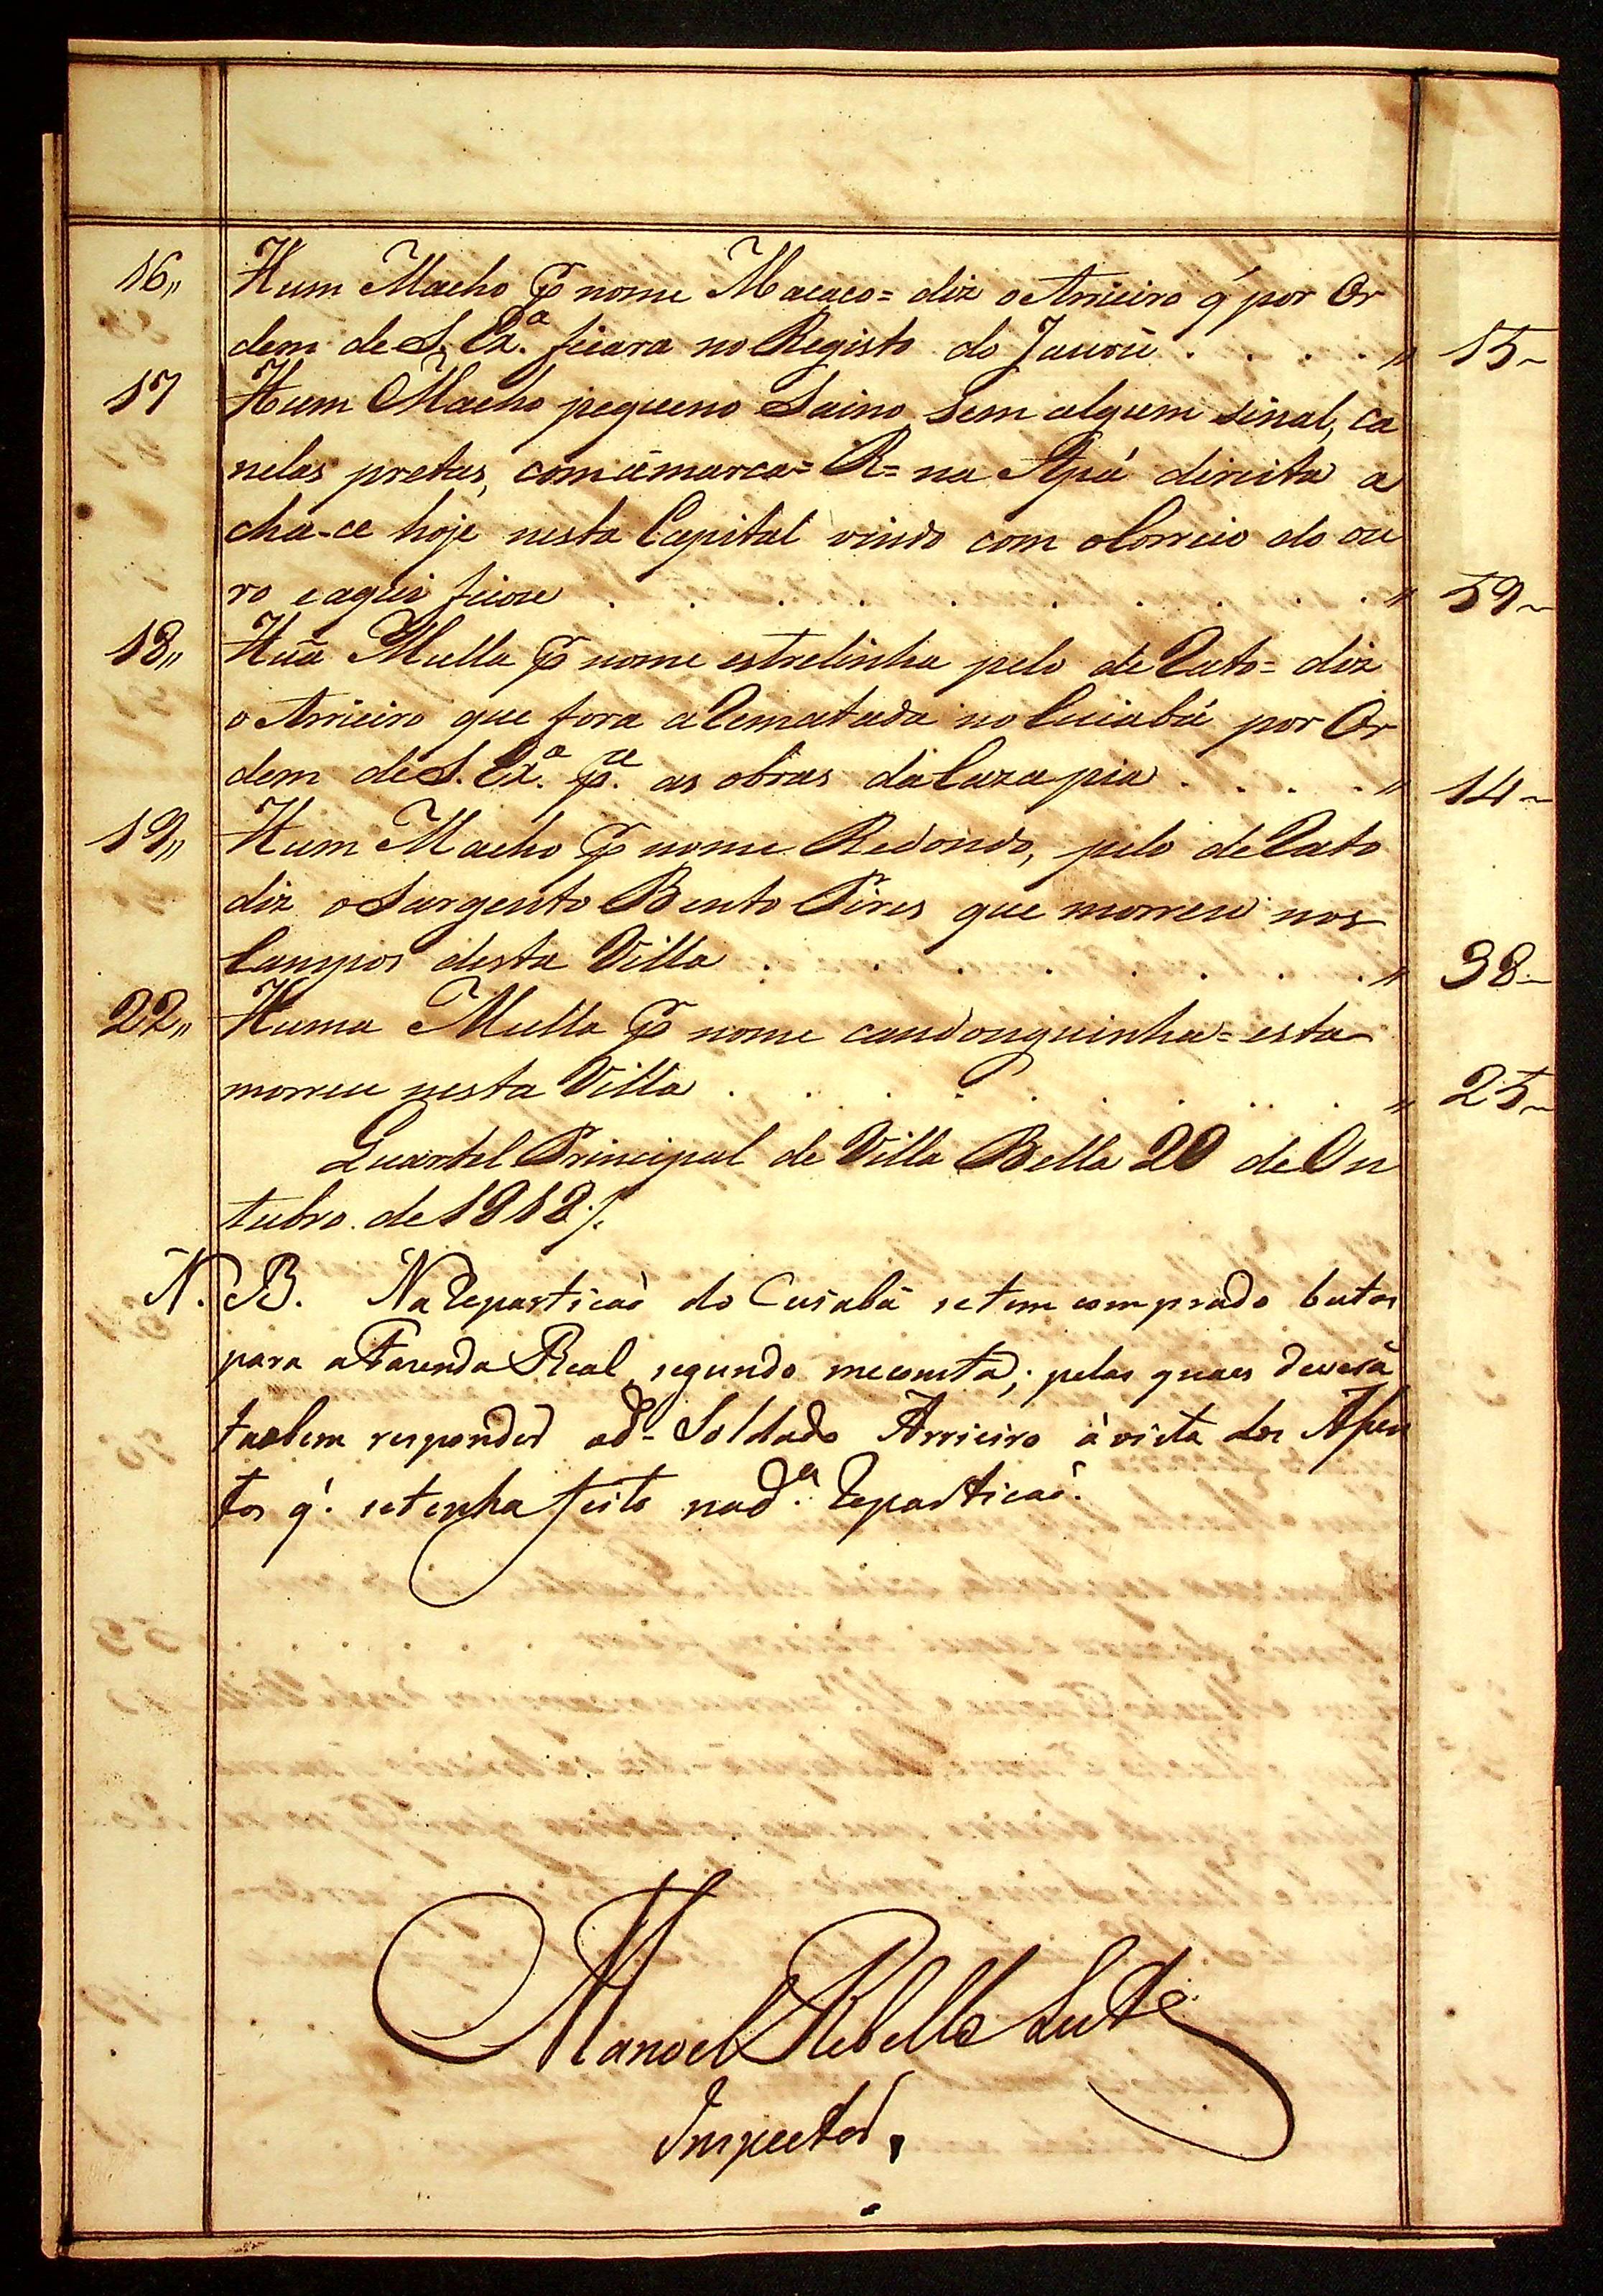 16,, Hum Macho p nome Macaco= diz o Arrieiro q' por Or
dem de S. Exª. ficara no Registo do Jaurú . . . . ,, 15~
17 Hum Macho pequeno Saino Sem algum sinal, ca
nelas pretas, com a marca= R= na Apá direita a
cha-ce hoje nesta Capital vindo com o Correio do ou
ro e aqui ficou . . . . . . . . . ,, 59~
18,, Huã Mulla p nome estrelinha pelo de Rato= diz
o Arrieiro que fora a Rematada no Cuiabá por Or
dem de S. Exª. pª. as obras da Caza pia . . . . ,, 14~
19,, Hum Macho p nome Redondo, pelo de Rato
diz o Sargento Bento Pires que morreu nos
Campos desta Villa . . . . . . . ,, 38~
22,, Huma Mulla p nome candonguinha= esta
morreu nesta Villa . . . . . . . . ,, 25~
Quartel Principal de Villa Bella 20 de Ou
tubro. de 1818./.
N. B. Na Repartição do Cuiabá se tem comprado bestas
para a Fazenda Real, segundo me consta; pelas quaes deverá
tãobem responder o dº Soldado Arrieiro à vista dos Assen
tos q'. se tenha feito na dª. Repartição.
Manoel Rebello Leite
Inspector.